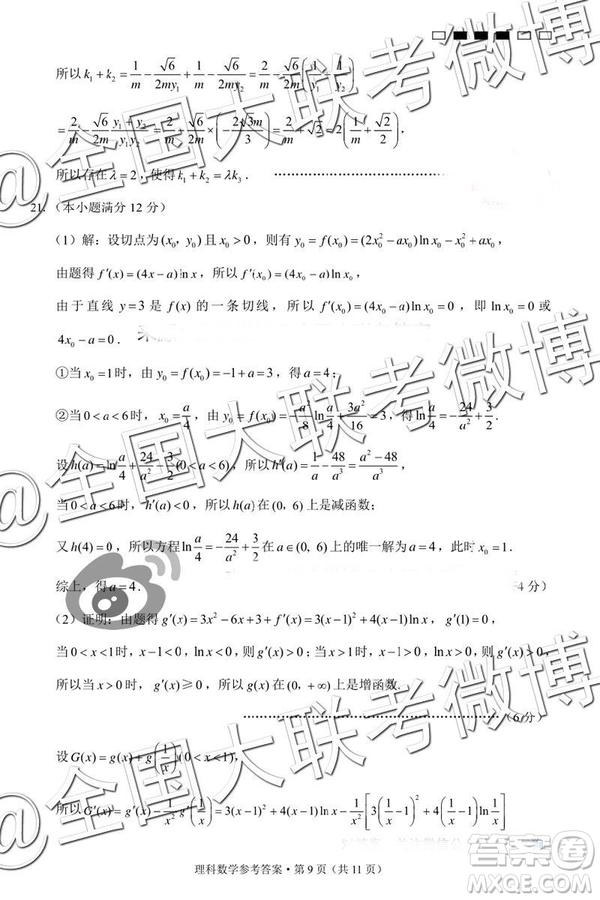 所以 k₁ + k₂ = 1/m − √6/(2my₁) + 1/m − √6/(2my₂) = 2/m − √6/(2m)(1/y₁ + 1/y₂)
= 2/m − √6/(2m) · (y₁ + y₂)/(y₁y₂) = 2/m − √6/(2m) × (−2√3m/3) = 2/m + √2 = 2(1/m + √2/2),
所以存在 λ = 2, 使得 k₁ + k₂ = λk₃.
21. (本小题满分 12 分)
(1) 解: 设切点为 (x₀, y₀) 且 x₀ > 0, 则有 y₀ = f(x₀) = (2x₀² − ax₀)ln x₀ − x₀² + ax₀,
由题得 f′(x) = (4x − a)ln x, 所以 f′(x₀) = (4x₀ − a)ln x₀,
由于直线 y = 3 是 f(x) 的一条切线, 所以 f′(x₀) = (4x₀ − a)ln x₀ = 0, 即 ln x₀ = 0 或
4x₀ − a = 0.
①当 x₀ = 1 时, 由 y₀ = f(x₀) = −1 + a = 3, 得 a = 4;
②当 0 < a < 6 时, x₀ = a/4, 由 y₀ = f(x₀) = −a²/8 ln a/4 + 3a²/16 = 3, 得 ln a/4 = −24/a² + 3/2.
设 h(a) = ln a/4 + 24/a² − 3/2 (0 < a < 6), 所以 h′(a) = 1/a − 48/a³ = (a² − 48)/a³,
当 0 < a < 6 时, h′(a) < 0, 所以 h(a) 在 (0, 6) 上是减函数;
又 h(4) = 0, 所以方程 ln a/4 = −24/a² + 3/2 在 a∈(0, 6) 上的唯一解为 a = 4, 此时 x₀ = 1.
综上, 得 a = 4. 4 分)
(2) 证明: 由题得 g′(x) = 3x² − 6x + 3 + f′(x) = 3(x − 1)² + 4(x − 1)ln x, g′(1) = 0,
当 0 < x < 1 时, x − 1 < 0, ln x < 0, 所以 g′(x) > 0; 当 x > 1 时, x − 1 > 0, ln x > 0, g′(x) > 0,
所以当 x > 0 时, g′(x) ≥ 0, g(x) 在 (0, +∞) 上是增函数.
(6 分)
设 G(x) = g(x) + g(1/x) (0 < x < 1),
所以 G′(x) = g′(x) − 1/x² g′(1/x) = 3(x − 1)² + 4(x − 1)ln x − 1/x² [3(1/x − 1)² + 4(1/x − 1)ln 1/x]
理科数学参考答案·第 9 页 (共 11 页)
@全国大联考微博
@全国大联考微博
答案圈
MXQE.COM